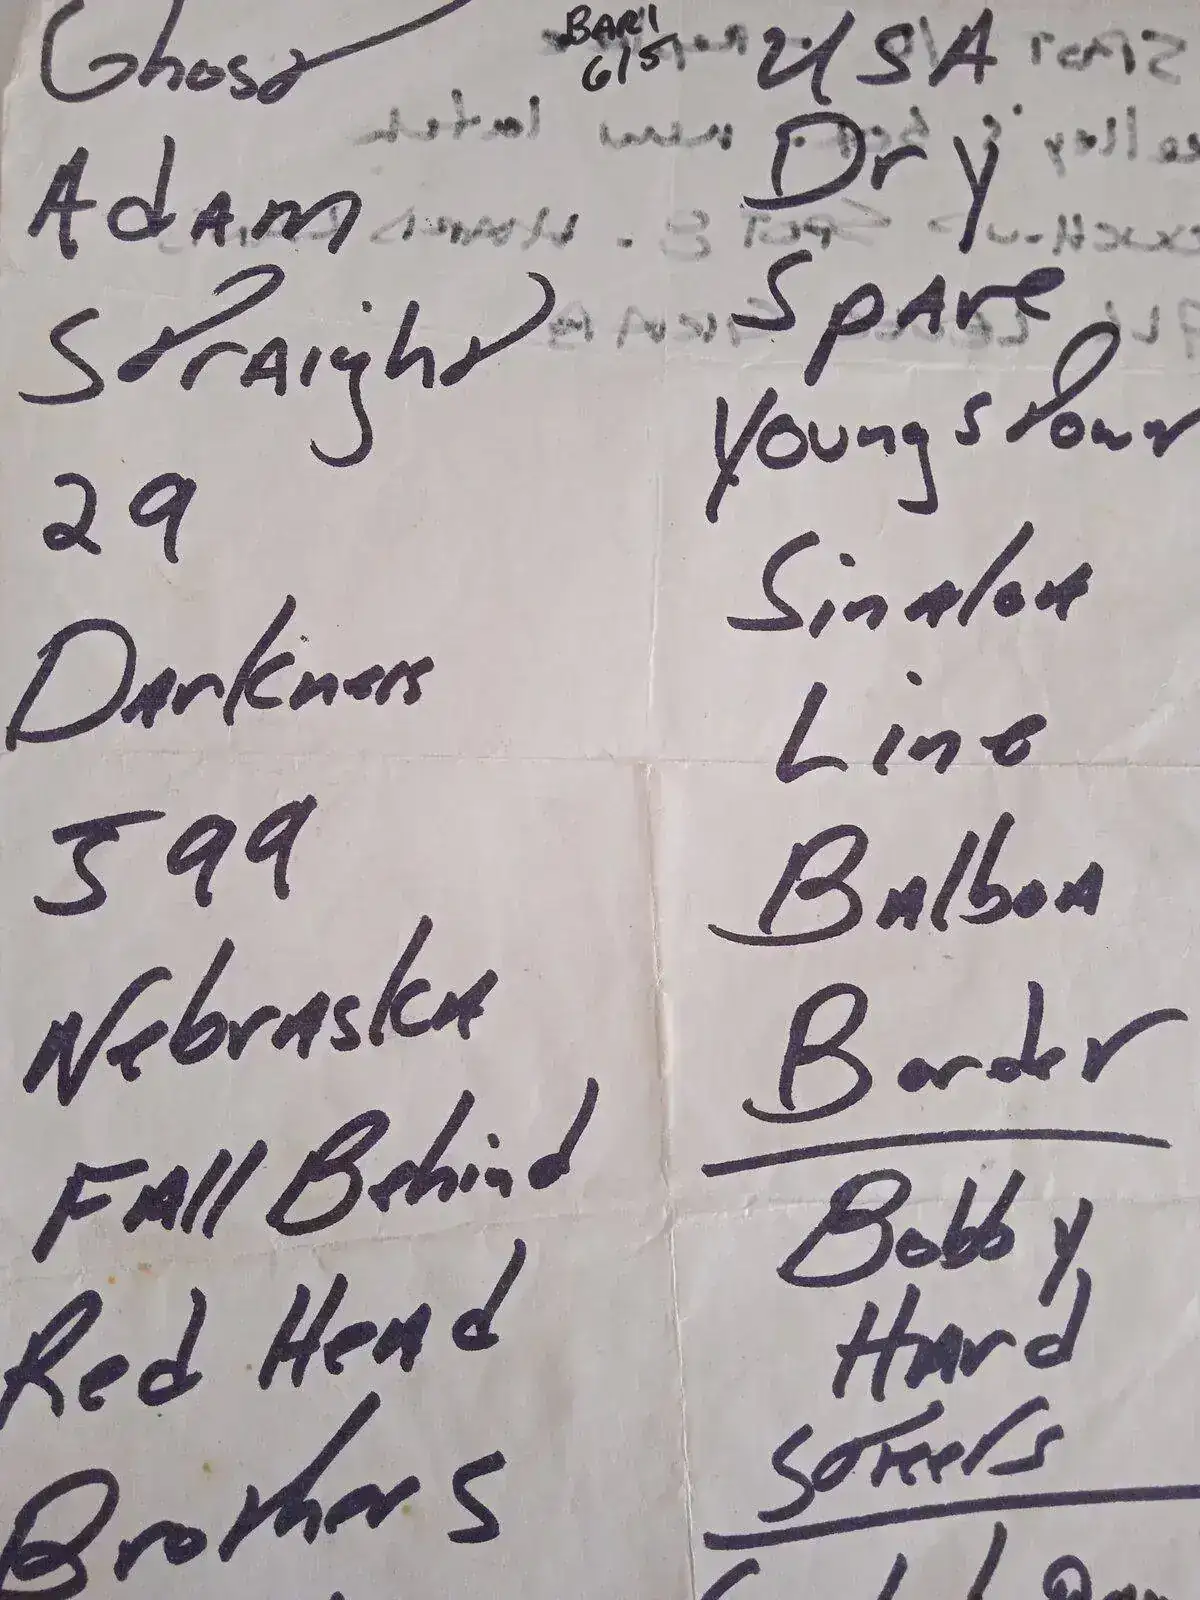 Ghost
Adam
Straight
29
Darkness
J99
Nebraska
Fall Behind
Red Head
Brothers
BARI
6/5
USA
Dry
Spare
Youngstown
Sinaloa
Line
Balboa
Border
Bobby
Hard
Streets